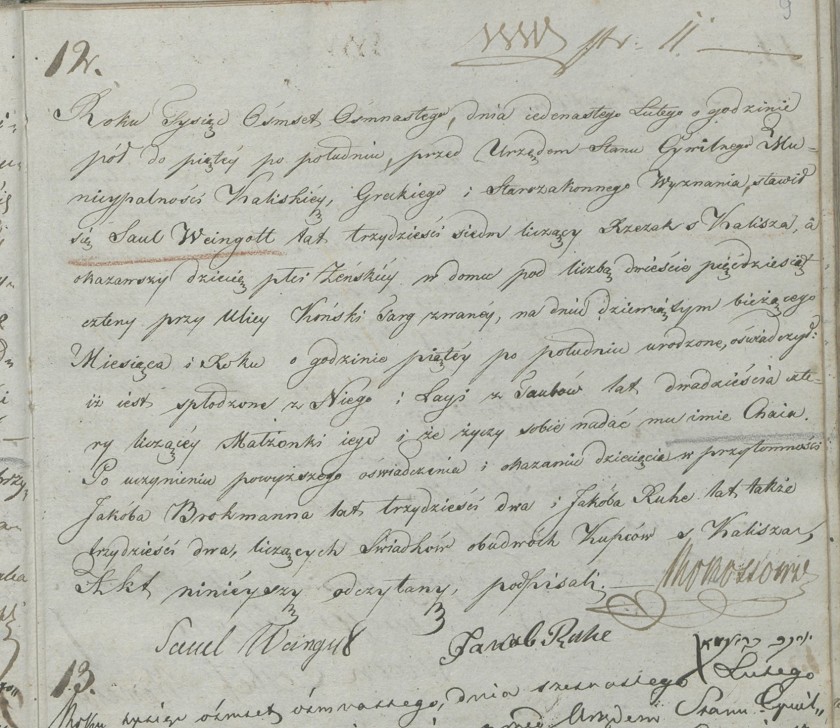 9
12.
str. 11.
Roku Tysiąc Ośmset Ośmnastego, dnia iedenastego Lutego o godzinie
pół do piątéy po południu, przed Urzędem Stanu Cywilnego Mu-
nicypalności Kaliskiéy, Greckiego i Starozakonnego Wyznania, stawił
się Saul Weingott lat trzydzieści siedm liczący Rzezak s Kalisza, a
okazawszy dziecię płci Żeńskiéy w domu pod liczbą dwieście pięćdziesiąt
cztery przy Ulicy Koński Targ zwanéy, na dniu dziewiątym bieżącego
Miesiąca i Roku o godzinie piątéy po południu urodzone, oświadczył:
iż iest spłodzone z Niego i Layi z Taubów lat dwadzieścia czte-
ry liczącéy Małżonki iego i że życzy sobie nadać mu imie Chaia.
Po uczynieniu powyższego oświadczenia i okazaniu dziecięcia w przytomności
Jakóba Brokmanna lat trzydzieści dwa i Jakóba Ruhe lat także
trzydzieści dwa, liczących Świadków obudwóch Kupców s Kalisza,
Akt ninieyszy odczytany, podpisali.
Saul Weingott Jakob Ruhe
13.
Roku tysiąc ośmset ośmnastego, dnia szesnastego Lutego
Urzędem Stanu Cywil-